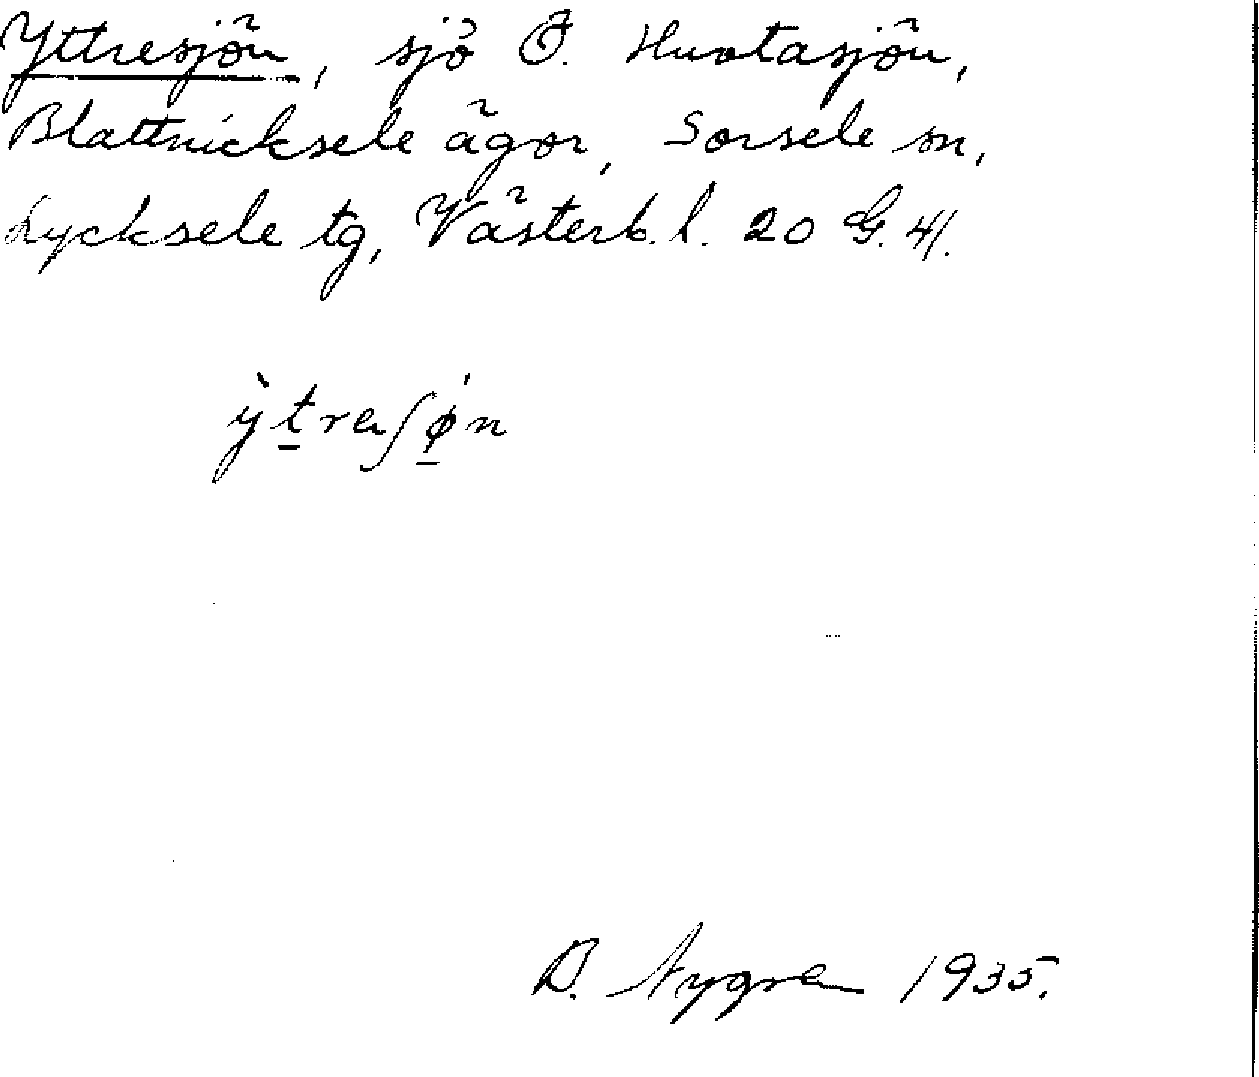 Yttresjön, sjö Ö. Huvtasjön,
Blattnicksele ägor, Sorsele sn,
Lycksele tg, Västerb. l. 20 G. 41.
ỳt̲re ʃǿ̲n
D. Nygren 1935.